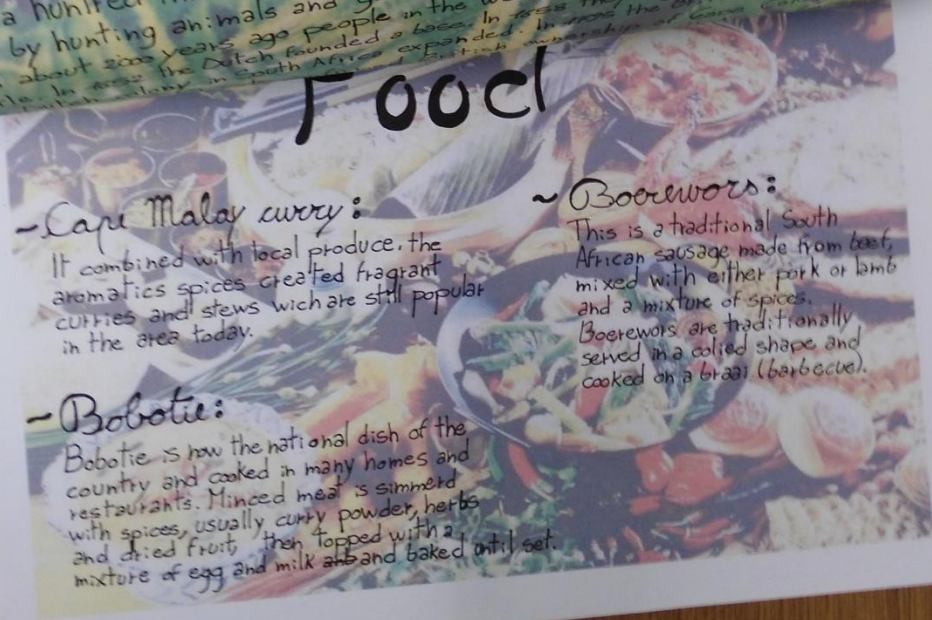 a hundred
by hunting animals and
about 2000 years ago people in the
the Dutch founded a base. In
in South Africa expanded. In
Food
~ Cape Malay curry:
It combined with local produce, the
aromatics spices created fragrant
curries and stews wich are still popular
in the area today.
~ Bobotie:
Bobotie is now the national dish of the
country and cooked in many homes and
restaurants. Minced meat is simmerd
with spices, usually curry powder, herbs
and dried fruit, then topped with a
mixture of egg and milk and baked until set.
~ Boerewors:
This is a traditional South
African sausage made from beef,
mixed with either pork or lamb
and a mixture of spices.
Boerewors are traditionally
served in a colied shape and
cooked on a braai (barbecue).